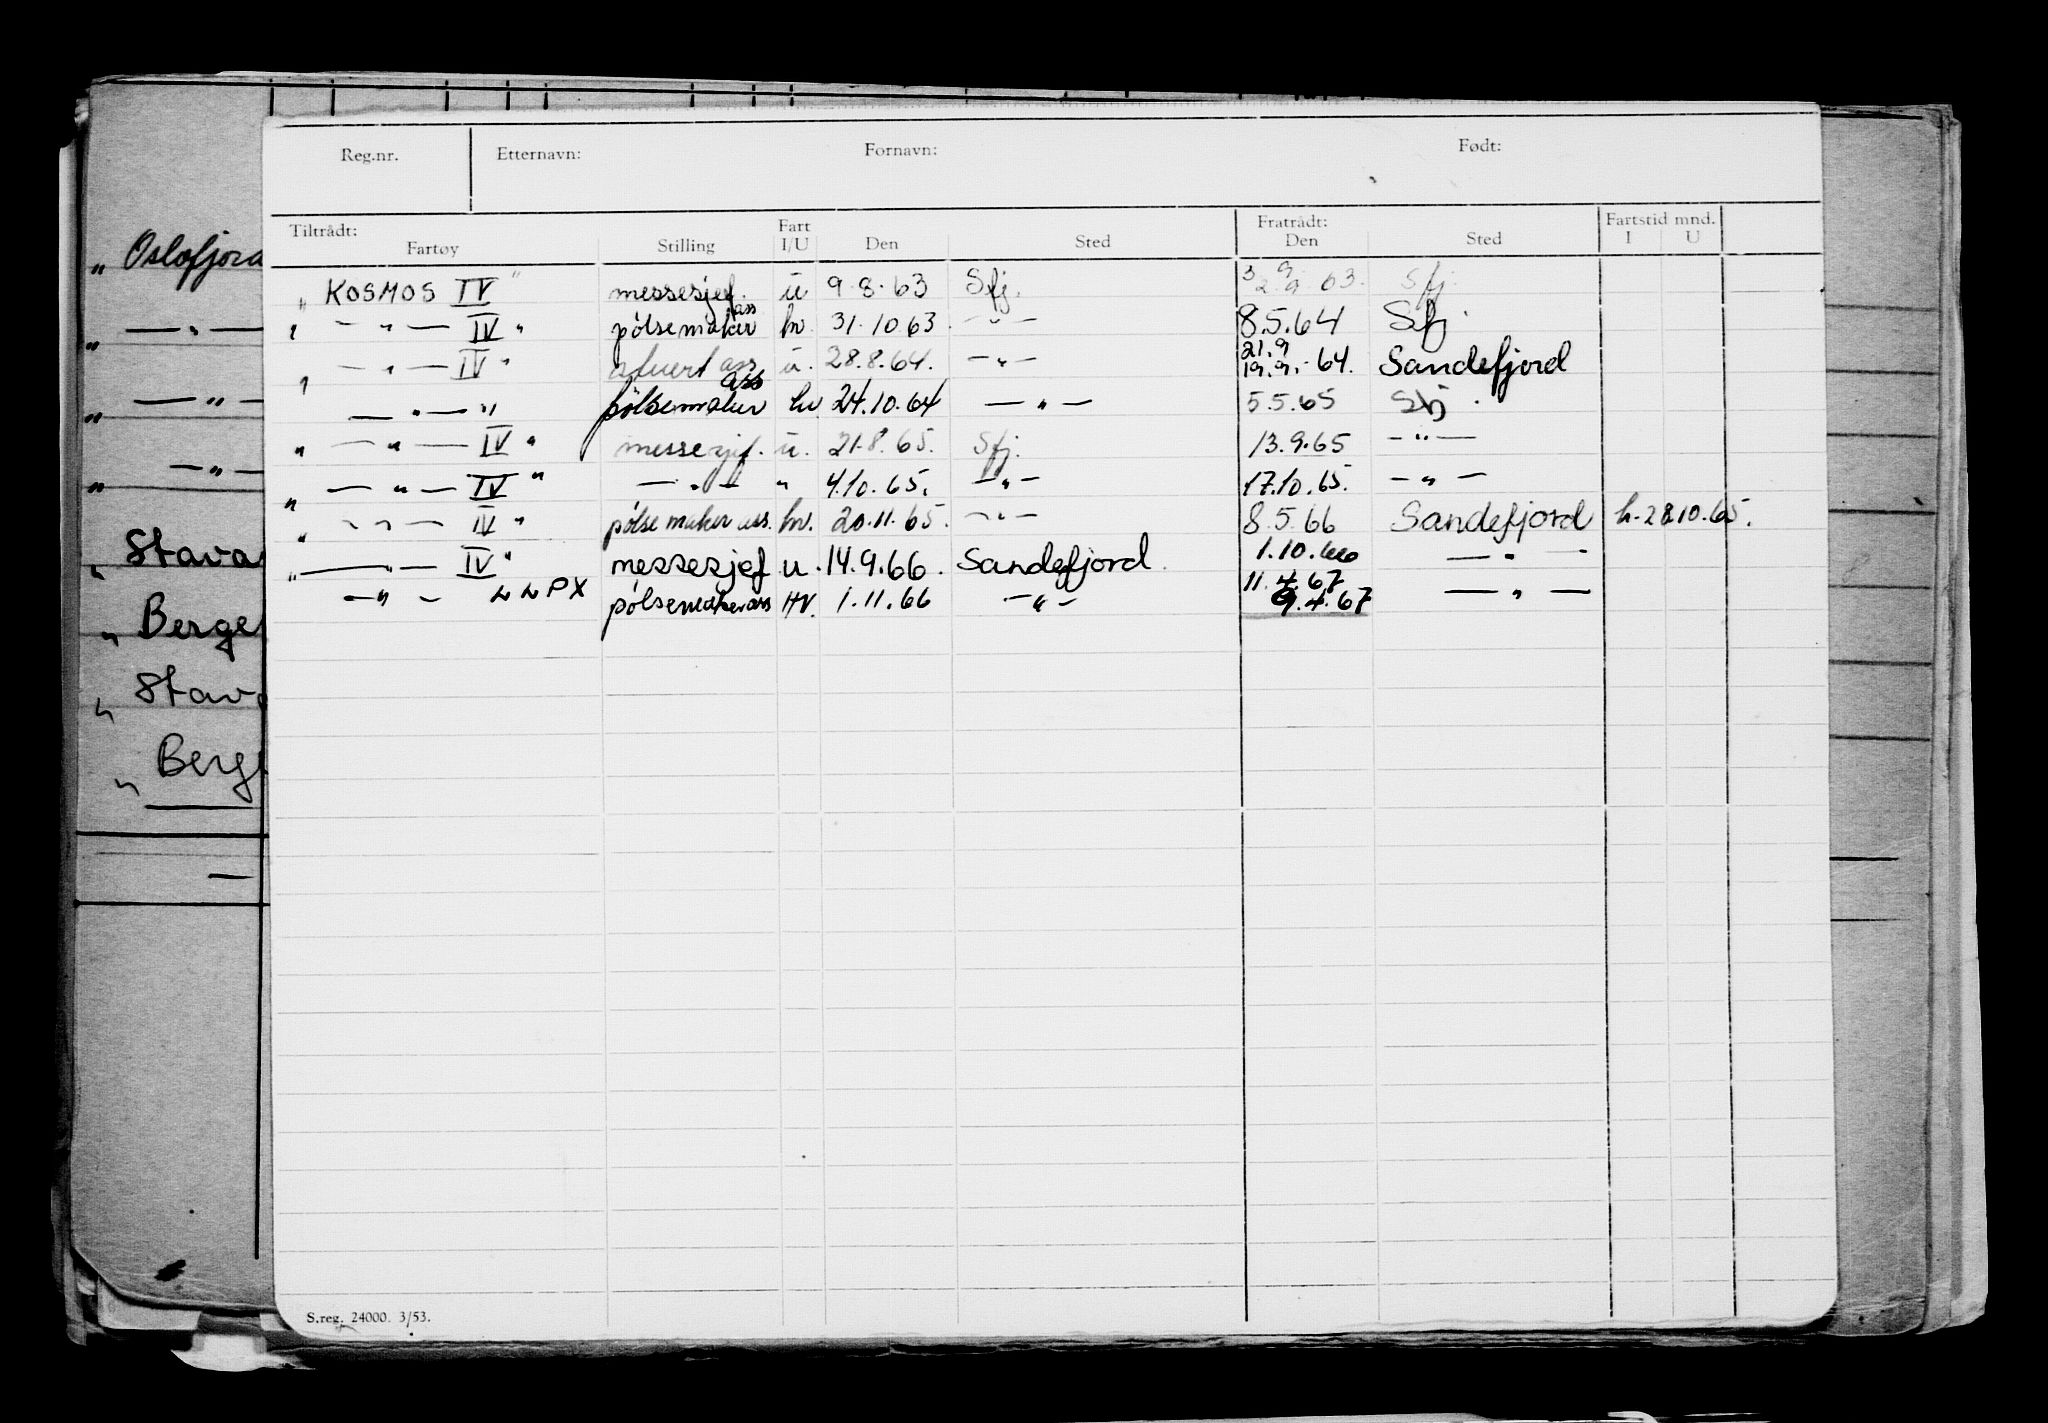 Reg.nr. Etternavn: Fornavn: Født:
Tiltrådt: Fartøy Stilling Fart I/U Den Sted Fratrådt: Den Sted Fartstid mnd. I U
" KOSMOS IV " messesjef. u 9.8.63 Sfj. 3 9 2.9.63. Sfj.
" — " — IV " pølsemaker ass hv. 31.10.63 — " — 8.5.64 Sfj.
" — " — IV " stuert ass u. 28.8.64. — " — 21.9 19.9.64. Sandefjord
— " — " pølsemaker ass hv 24.10.64 — " — 5.5.65 Sfj.
" — " — IV " messesjef. u. 21.8.65. Sfj. 13.9.65 — " —
" — " — IV " — " — " 4.10.65. — " — 17.10.65. — " —
" — " — IV " pølsemaker ass. hv. 20.11.65. — " — 8.5.66 Sandefjord h. 28.10.65.
" — " — IV " messesjef u. 14.9.66. Sandefjord. 1.10.66 — " —
— " — LLPX pølsemaker ass HV. 1.11.66 — " — 11.4.67 9.4.67 — " —
" Oslofjord
— " —
"
— " —
"
— " —
"
" Stava
" Berge
" Stava
" Berge
—
S.reg. 24000. 3/53.